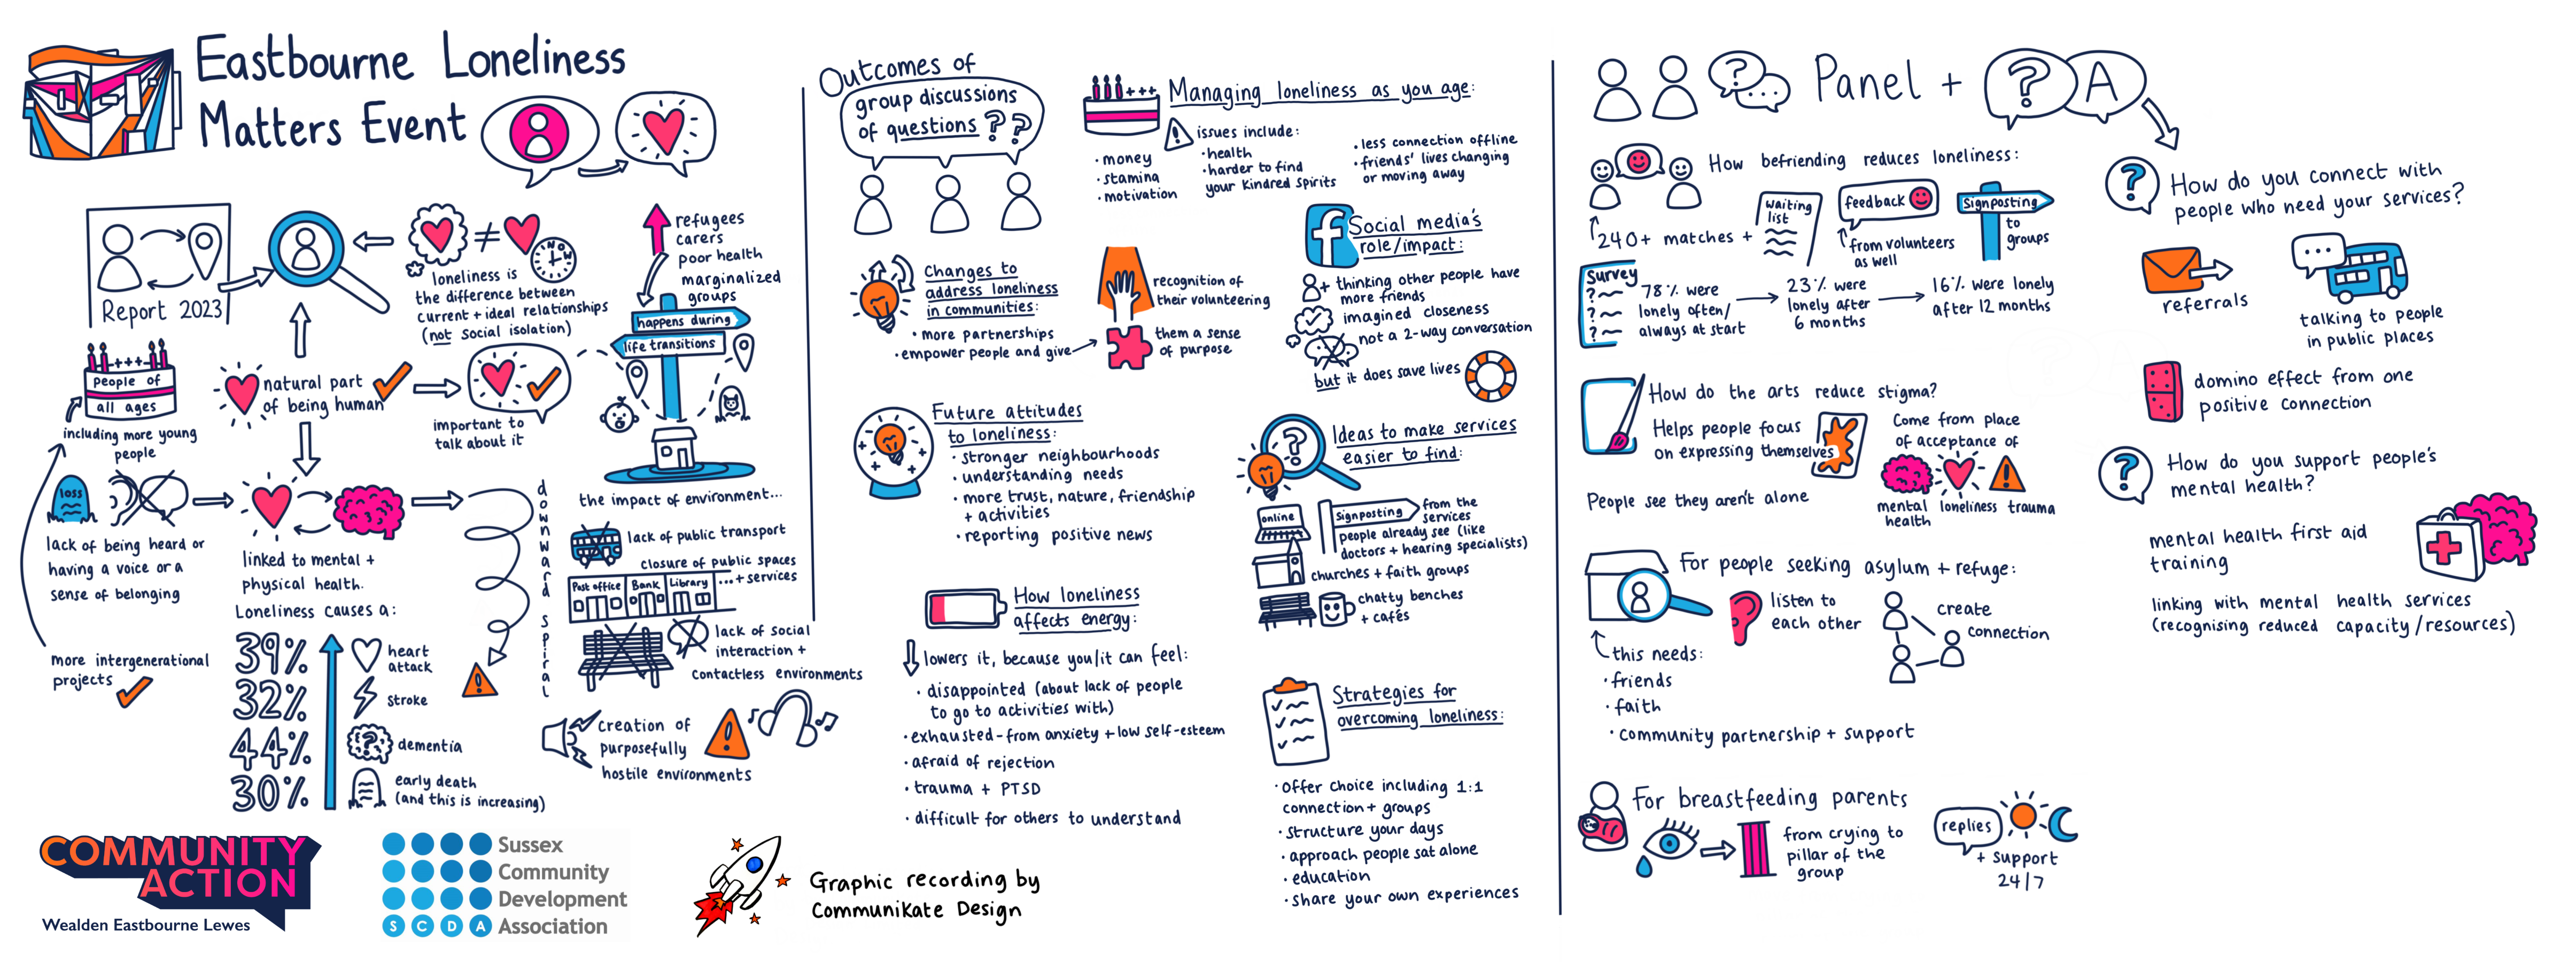 Eastbourne Loneliness
Matters Event
Report 2023
loneliness is
the difference between
current + ideal relationships
(not social isolation)
NOW
refugees
carers
poor health
marginalized
groups
happens during
life transitions
people of
all ages
including more young
people
natural part
of being human
important to
talk about it
loss
lack of being heard or
having a voice or a
sense of belonging
linked to mental +
physical health.
Loneliness causes a:
39% heart
attack
32% stroke
44% dementia
30% early death
(and this is increasing)
more intergenerational
projects
downward spiral
the impact of environment...
lack of public transport
closure of public spaces
...+ services
Post office
Bank
Library
lack of social
interaction +
contactless environments
creation of
purposefully
hostile environments
COMMUNITY
ACTION
Wealden Eastbourne Lewes
Sussex
Community
Development
SCDA Association
Graphic recording by
Communikate Design
Outcomes of
group discussions
of questions ? ?
Changes to
address loneliness
in communities:
• more partnerships
• empower people and give
recognition of
their volunteering
them a sense
of purpose
Future attitudes
to loneliness:
• stronger neighbourhoods
• understanding needs
• more trust, nature, friendship
+ activities
• reporting positive news
How loneliness
affects energy:
lowers it, because you/it can feel:
• disappointed (about lack of people
to go to activities with)
• exhausted - from anxiety + low self-esteem
• afraid of rejection
• trauma + PTSD
• difficult for others to understand
+++
Managing loneliness as you age:
issues include:
• money
• stamina
• motivation
• health
• harder to find
your kindred spirits
• less connection offline
• friends' lives changing
or moving away
f
Social media's
role/impact:
+ thinking other people have
more friends
imagined closeness
not a 2-way conversation
but it does save lives
Ideas to make services
easier to find:
online
Signposting
from the
services
people already see (like
doctors + hearing specialists)
churches + faith groups
chatty benches
+ cafés
Strategies for
overcoming loneliness:
• offer choice including 1:1
connection + groups
• structure your days
• approach people sat alone
• education
• share your own experiences
Panel + ? A
How befriending reduces loneliness:
240+ matches +
waiting
list
feedback
from volunteers
as well
Signposting
to
groups
Survey
78% were
lonely often/
always at start
23% were
lonely after
6 months
16% were lonely
after 12 months
How do the arts reduce stigma?
Helps people focus
on expressing themselves
Come from place
of acceptance of
mental
health
loneliness
trauma
People see they aren't alone
For people seeking asylum + refuge:
listen to
each other
create
connection
this needs:
• friends
• faith
• community partnership + support
For breastfeeding parents
from crying to
pillar of the
group
replies
+ support
24/7
How do you connect with
people who need your services?
referrals
talking to people
in public places
domino effect from one
positive connection
How do you support people's
mental health?
mental health first aid
training
linking with mental health services
(recognising reduced capacity/resources)